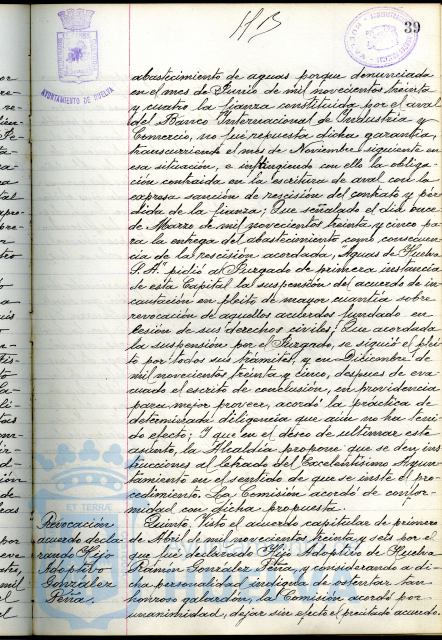 39
AYUNTAMIENTO DE HUELVA
abastecimiento de aguas porque denunciada
en el mes de Junio de mil novecientos treinta
y cuatro la fianza constituida por el aval
del Banco Internacional de Industria y
Comercio, no fué repuesta dicha garantía,
transcurriendo el mes de Noviembre siguiente en
esa situación, e infringiendo con ello la obliga-
ción contraida en la escritura de aval con la
expresa sanción de rescisión del contrato y pér-
dida de la fianza; Que señalado el día once
de Marzo de mil novecientos treinta y cinco pa-
ra la entrega del abastecimiento como consecuen-
cia de la rescisión acordada, "Aguas de Huelva
S.A." pidió al Juzgado de primera instancia
de esta Capital la suspensión del acuerdo de in-
cautación en pleito de mayor cuantía sobre
revocación de aquellos acuerdos fundado en
lesión de sus derechos civiles; Que acordada
la suspensión por el Juzgado, se siguió el plei-
to por todos sus trámites, y en Diciembre de
mil novecientos treinta y cinco, despues de eva-
cuado el escrito de conclusión, en providencia
para mejor proveer, acordó la práctica de
determinada diligencia que aún no ha teni-
do efecto; Y que en el deseo de ultimar este
asunto, la Alcaldía propone que se den ins-
trucciones al letrado del Excelentísimo Ayun-
tamiento en el sentido de que se inste el pro-
cedimiento. La Comisión acordó de confor-
midad con dicha propuesta.
Revocación
acuerdo decla-
rando Hijo
Adoptivo
González
Peña.
Quinto. Visto el acuerdo capitular de primero
de Abril de mil novecientos treinta y seis por el
que fué declarado Hijo Adoptivo de Huelva
Ramón González Peña, y considerando a di-
cha personalidad indigna de ostentar tan
honroso galardón, la Comisión acordó por
unanimidad, dejar sin efecto el precitado acuerdo.